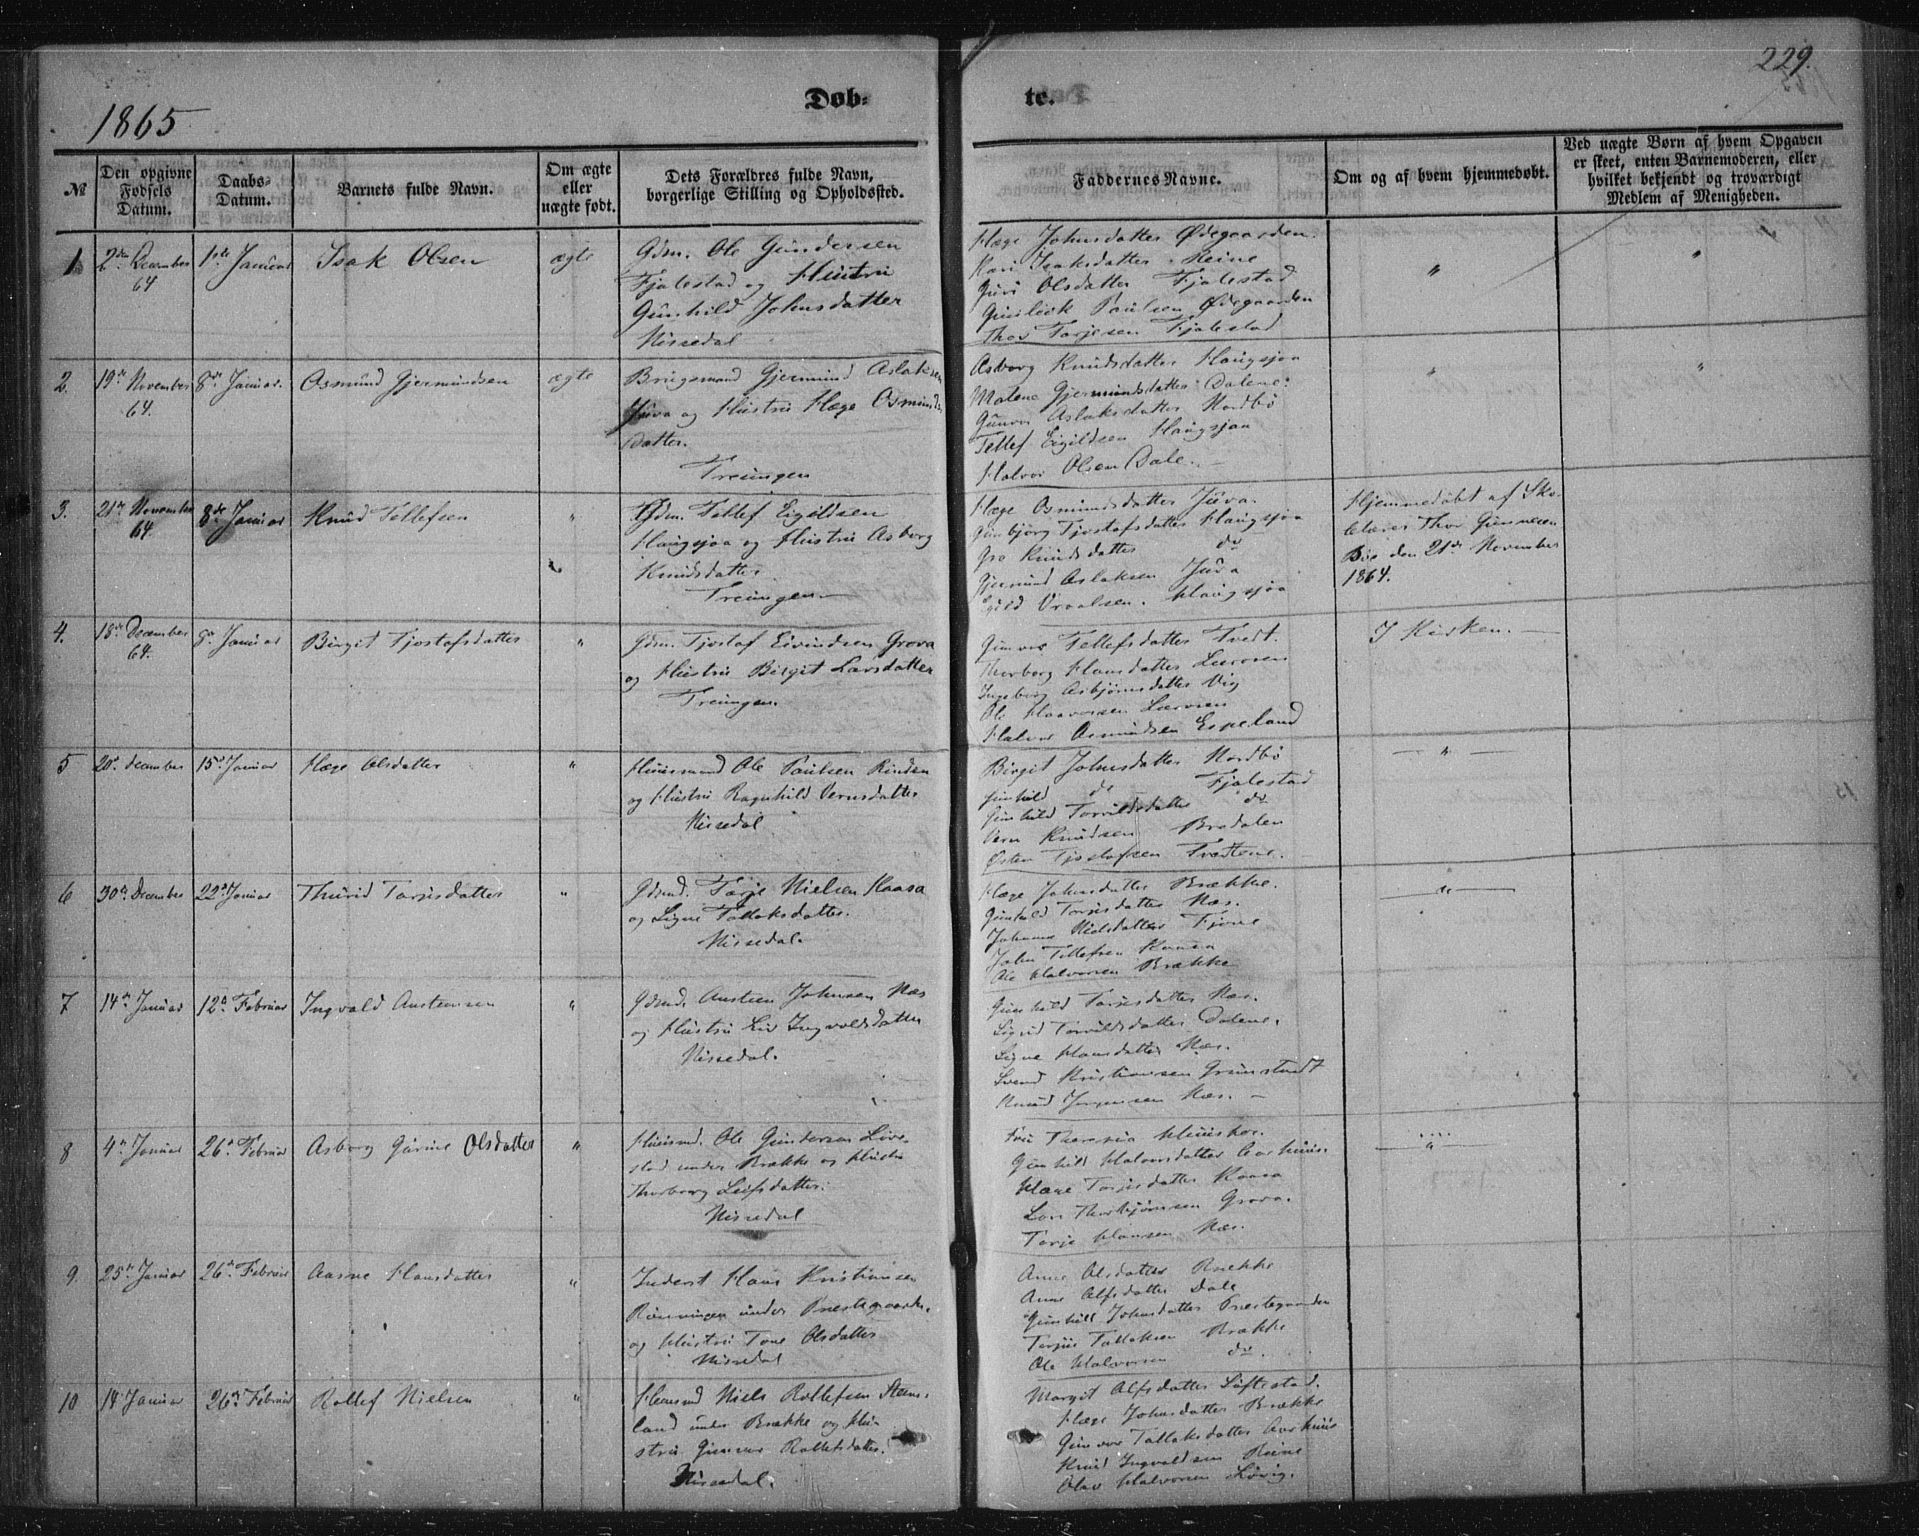 229.
1865
Døb-
te.
№
Den opgivne Fødsels Datum.
Daabs-Datum.
Barnets fulde Navn.
Om ægte eller uægte født.
Dets Forældres fulde Navn, borgerlige Stilling og Opholdssted.
Faddernes Navne.
Om og af hvem hjemmedøbt.
Ved uægte Børn af hvem Opgaven er skeet, enten Barnemoderen, eller hvilket bekjendt og troværdigt Medlem af Menigheden.
1 2den December 64 1ste Januar Isak Olsen ægte
Gdm. Ole Gundersen
Fjalestad og Hustru
Gunhild Johnsdatter
Nissedal
Hæge Johnsdatter Ødegaarden.
Kari Isaksdatter Heine
Guri Olsdatter Fjalestad
Gunleik Paulsen Ødegaarden
Thor Torjesen Fjalestad
" "
2. 19de November 64. 8de Januar. Osmund Gjermundsen ægte
Brugsmand Gjermund Aslaksen
Juva og Hustru Hæge Osmunds
datter.
Treungen
Asborg Knudsdatter Haugsjaa
Malene Gjermundsdatter Dalene.
Gunvor Aslaksdatter Nordbø
Tellef Eigildsen Haugsjaa
Halvor Olsen Dale.
" "
3. 21de November 64. 8de Januar Knud Tellefsen "
Gdm. Tellef Eigildsen
Haugsjaa og Hustru Asborg
Knudsdatter.
Treungen
Hæge Osmundsdatter Juva.
Gunbjørg Tjostafsdatter Haugsjaa
Gro Knudsdatter do
Gjermund Aslaksen Juva
Egild Vraalsen. Haugsjaa
Hjemmedøbt af Sko-
lærer Thor Gunnesen
Bø den 21de November
1864.
4. 18de December 64. 8de Januar Birgit Tjostafsdatter "
Gdm. Tjostaf Eivindsen Grova
og Hustru Birgit Larsdatter
Treungen.
Gunvor Tellefsdatter Tvedt.
Thorborg Hansdatter
Ingeborg Asbjørnsdatter Vig
Ole Haavorsen
Halvor Osmundsen Espeland
I Kirken.
5 20de December 15de Januar Hæge Olsdatter "
Huusmand Ole Paulsen Rinden
og Hustru Ragnhild Vernsdatter
Nissedal
Birgit Johnsdatter Nordbø
Gunhild do Fjalestad
Gunhild Torvildsdatter do
Vern Knudsen Bredalen
Østen Tjostafsen Tvedtene.
"
6 30te December 22de Januar Thurid Torjusdatter "
Gdmd. Torje Nielsen Kaasa
og Signe Tallaksdatter.
Nissedal.
Hæge Johnsdatter Brække.
Gunhild Torjusdatter Næs.
Johanne Nielsdatter Fjone
John Tellefsen Kaasa
Ole Halvorsen Brække
"
7 14de Januar 12te Februar Ingvald Austensen "
Gdmd. Austen Johnsen Næs
og Hustru Liv Ingvoldsdatter
Nissedal.
Gunhild Torjusdatter Næs.
Sigrid Torvildsdatter Dalene.
Signe Hansdatter Næs.
Svend Kristiansen Grimstad
Knud Jørgensen Næs.
8 4de Januar 26de Februar Asborg Gurine Olsdatter "
Huusmd. Ole Gundersen Live-
stad under Brække og Hustru
Thorborg Leifsdatter.
Nissedal
Fru Theresia
Gunhild Halvorsdatter Aarhuus.
Hæge Torjusdatter Kaasa
Lars Thorbjørnsen Grova.
Torje Hansen Næs.
"
9. 25de Januar 26de Februar Aasne Hansdatter "
Inderst Hans Kristiansen
Rønningen under Præstegaarden
og Hustru Tone Olsdatter
Nissedal
Anne Olsdatter Brække
Anne Alfsdatter Dale
Gunhild Johnsdatter Præstegaarden
Torjus Tallaksen Brække
Ole Halvorsen do.
10 14 Januar 26de Februar Rollef Nielsen "
Huusmd Niels Rollefsen Steins-
land under Brække og Hu-
stru Gunvor Rollefsdatter.
Nissedal.
Margit Alfsdatter Tuftestad.
Hæge Johnsdatter Brække
Gunvor Tallaksdatter Aarhuus
Knud Ingvaldsen Reine
Olav Halvorsen Løvig.